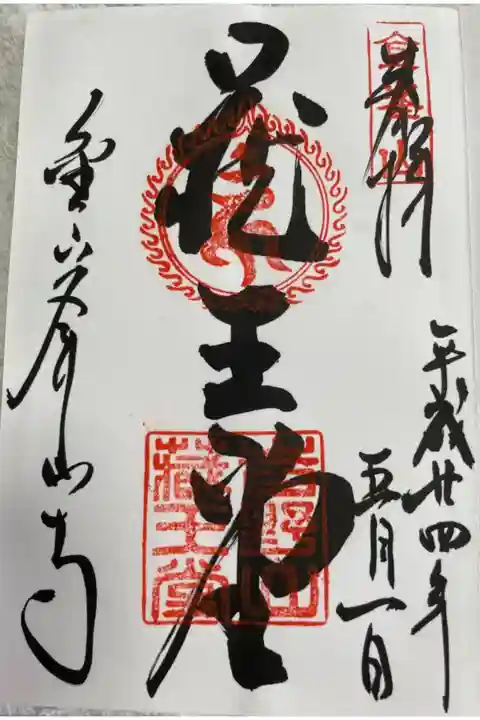 奉拝
平成廿四年
五月一日
蔵王堂
吉野山
蔵王堂
金峯山寺